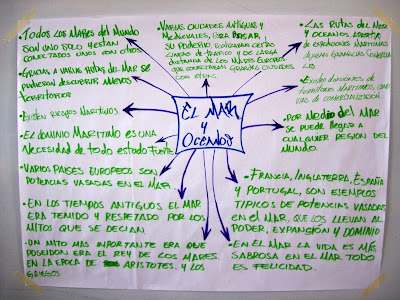 • Todos los Mares del Mundo
son uno solo y estan
conectados unos con otros
• Gracias a varias rutas del mar se
pudieron descubrir nuevos
territorios
• Existen riesgos Maritimos
• El dominio Maritimo es una
Necesidad de todo estado fuerte
• Varios paises europeos son
potencias vasadas en el mar
• En los tiempos antiguos el mar
era temido y respetado por los
mitos que se decian
• Un mito mas importante era que
poseidon era el rey de los mares.
en la epoca de Aristotes. y los
griegos
• Varias ciudades antiguas y
Medievales, para basar
su poderio, utilizaban ciertas
lineas de trafico y de larga
distancia de los mares Europeos
que conectaban grandes ciudades
con otras.
El Mar
y
Oceanos
• Las rutas del mar
y oceanos, aparta
de expediciones maritimas
dejaban ganancias
Existen divisiones de
territorios Maritimos, con
vias de comercializacion
• Por medio del mar
se puede llegar a
cualquier region del
mundo.
• Francia, Inglaterra, España
y Portugal, son ejemplos
tipicos de potencias vasadas
en el mar, que los llevan al
poder, expanción y dominio
• En el mar la vida es más
sabrosa en el mar todo
es felicidad.